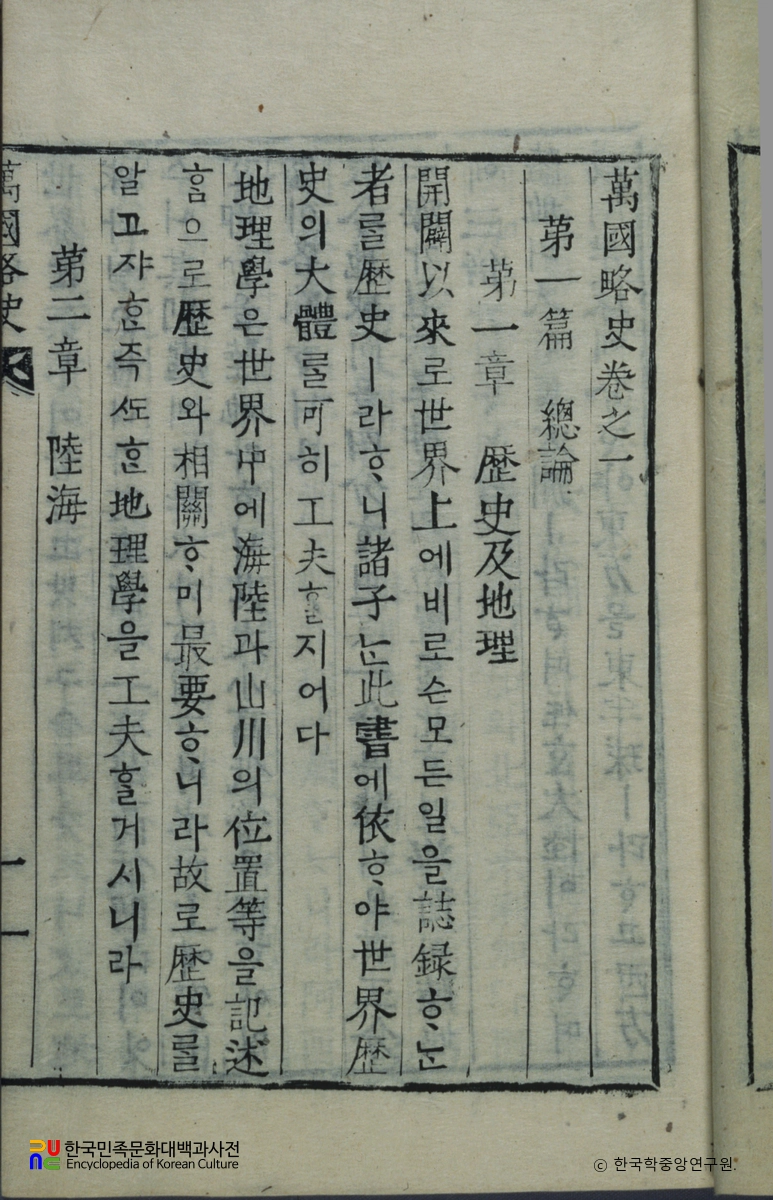 萬國略史卷之一
第一篇 總論
第一章 歷史及地理
開闢以來로世界上에비로슨모든일을誌録ᄒᆞᄂᆞᆫ
者를歷史ㅣ라ᄒᆞ니諸子ᄂᆞᆫ此書에依ᄒᆞ야世界歷
史의大體를可히工夫ᄒᆞᆯ지어다
地理學은世界中에海陸과山川의位置等을記述
ᄒᆞᆷ으로歷史와相關ᄒᆞ미最要ᄒᆞ니라故로歷史를
알고쟈ᄒᆞᆫ즉ᄯᅩᄒᆞᆫ地理學을工夫ᄒᆞᆯ거시니라
第二章 陸海
萬國略史
一 一
한국민족문화대백과사전
Encyclopedia of Korean Culture
© 한국학중앙연구원.